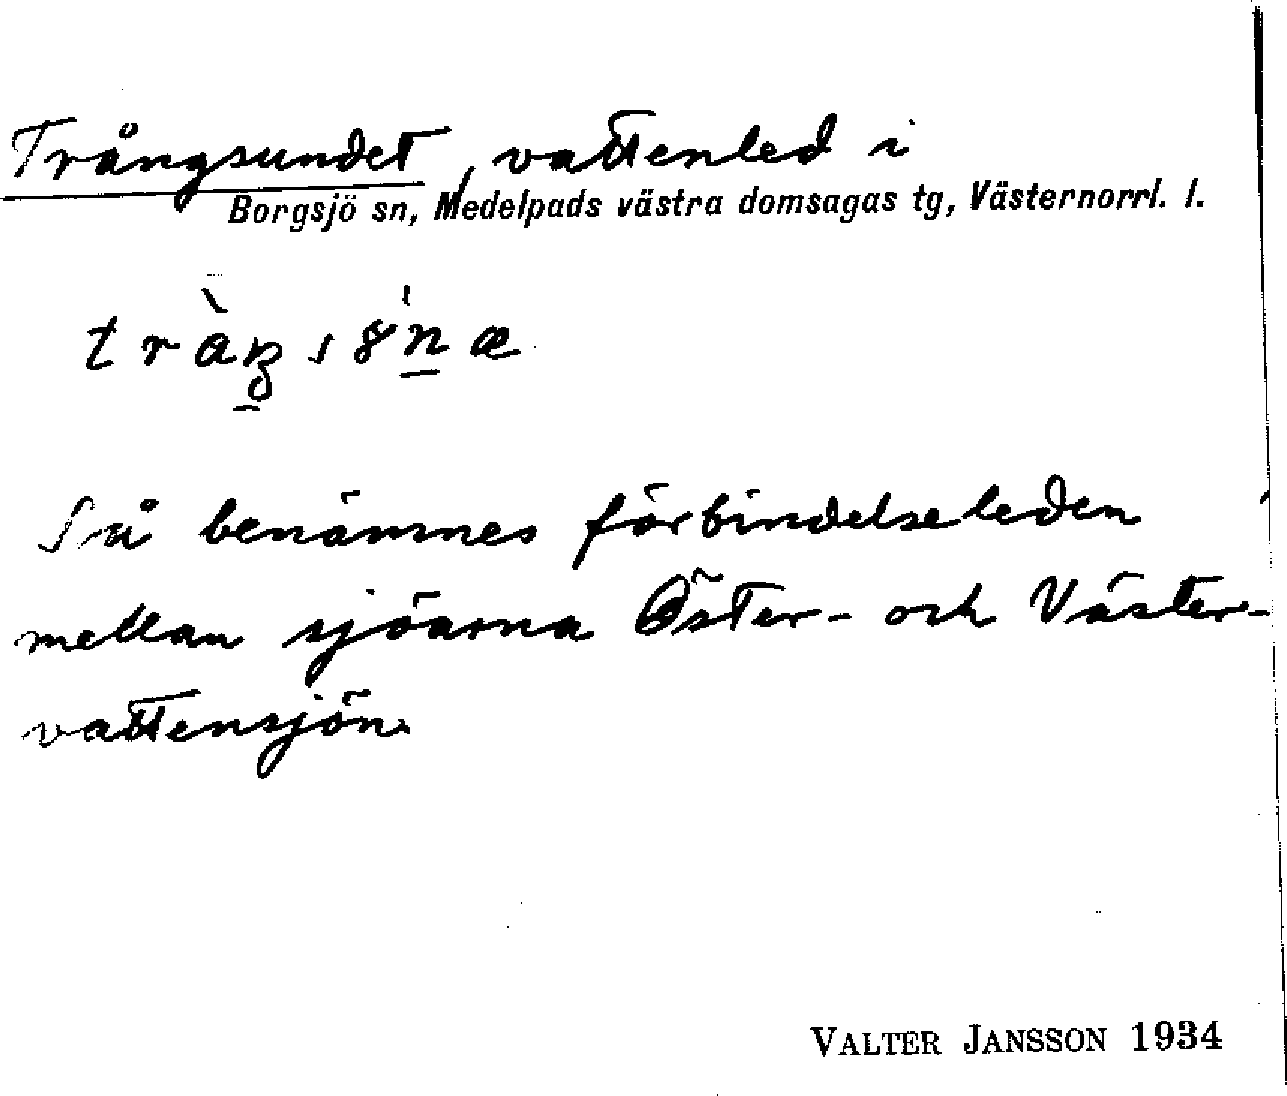 Trångsundet, vattenled i
Borgsjö sn, Medelpads västra domsagas tg, Västernorrl. l.
Så benämnes förbindelseleden
mellan sjöarna Öster- och Väster-
vattensjön.
VALTER JANSSON 1934